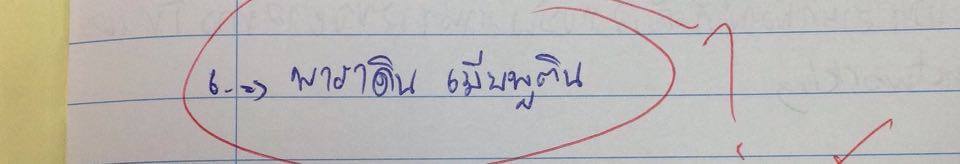 6. => พาราดิน เมียพูติน